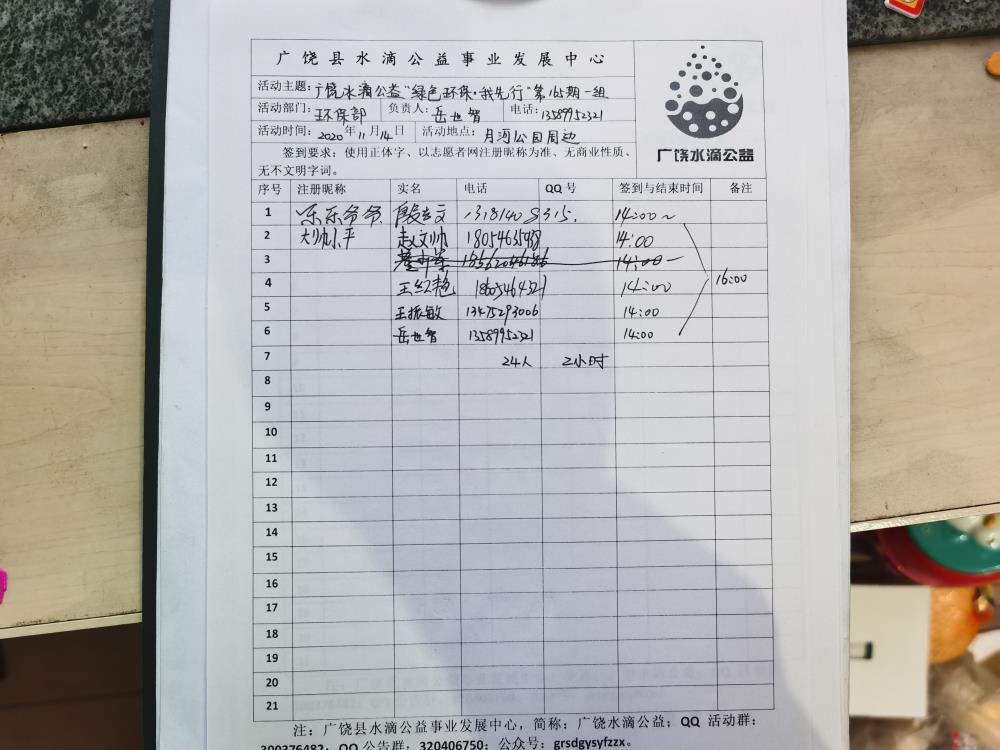 广饶县水滴公益事业发展中心
活动主题：广饶水滴公益"绿色环保·我先行"第165期一组
活动部门：环保部 负责人：岳世智 电话：13589952321
活动时间：2020年11月14日 活动地点：月河公园周边
签到要求：使用正体字、以志愿者网注册昵称为准、无商业性质、
无不文明字词。
广饶水滴公益
序号 注册昵称 实名 电话 QQ号 签到与结束时间 备注
1 乐乐爷爷 14:00~
2 大帅小平 赵文帅 14:00
3 14:00
4 王红艳 14:00
16:00
5 王振敏 13475293006 14:00
6 岳世智 13589952321 14:00
7 24人 2小时
8
9
10
11
12
13
14
15
16
17
18
19
20
21
注：广饶县水滴公益事业发展中心，简称：广饶水滴公益；QQ活动群：
300376482；QQ公告群：320406750；公众号：grsdgysyfzzx。